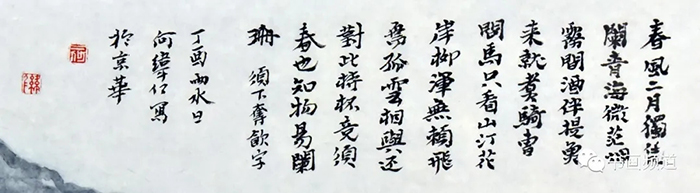 春風二月獨憑
闌青海微茫烟
霧間酒伴提魚
來就煮騎曹
問馬只看山汀花
岸柳渾無賴飛
鳥孤雲相與還
對此持杯竟須
春也知物易闌
珊 須下奪飲字
丁酉雨水日
何緯仁寫
於京華
书画频道